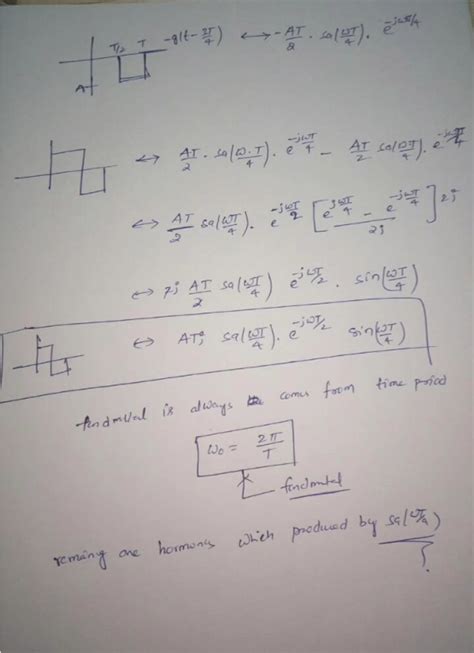 T/2 T -g(t - 3T/4) ↔ -AT/2 · sa(ωT/4) · e^-jωT/4
A
↔ AT/2 · sa(ω·T/4) · e^-jωT/4 - AT/2 sa(ωT/4) · e
↔ AT/2 sa(ωT/4) · e^-jωT/2 [ e^jωT/4 - e^-jωT/4 / 2j ] 2j
↔ 2j AT/2 sa(ωT/4) e^-jωT/2 · sin(ωT/4)
↔ ATj sa(ωT/4) · e^-jωT/2 sin(ωT/4)
findmutal is always comes from time period
ω0 = 2π/T
findmutal
remaing are hormonis which produced by sa(ωT/4)